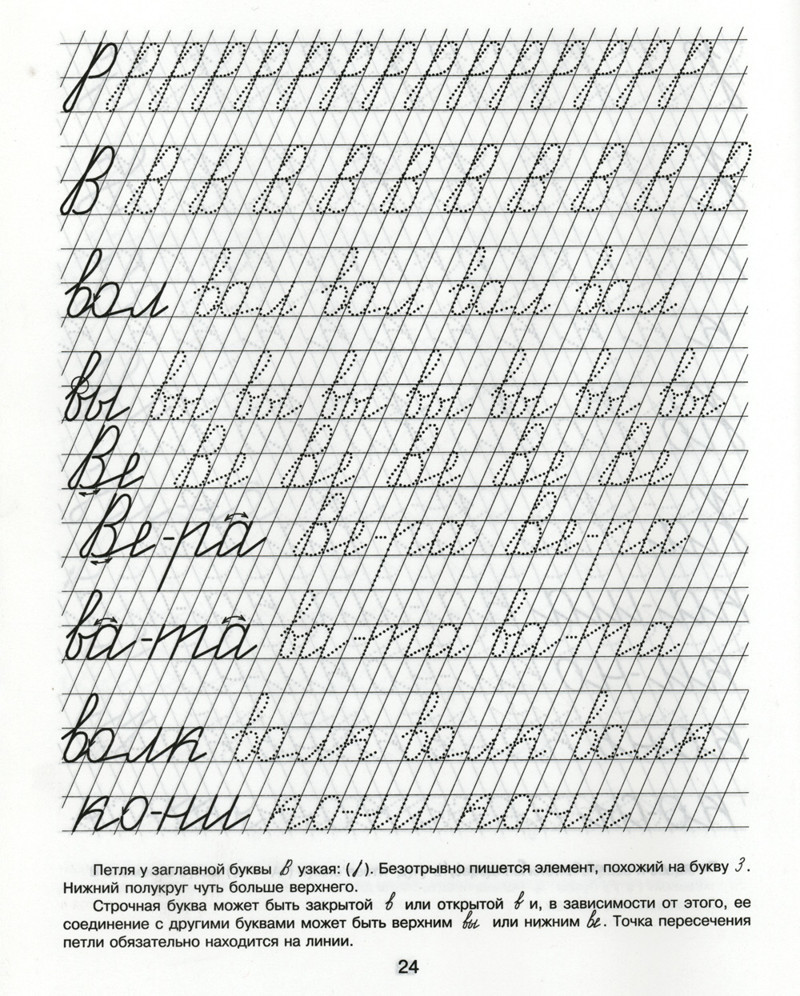 Р Р Р Р Р Р Р Р Р Р Р Р Р Р Р
В В В В В В В В В В В
вол вол вол вол вол
вы вы вы вы вы вы вы вы
Ве Ве Ве Ве Ве Ве
Ве-ра Ве-ра Ве-ра
ва-та ва-та ва-та
волк волк волк волк
ко-ни ко-ни ко-ни
Петля у заглавной буквы В узкая: (/). Безотрывно пишется элемент, похожий на букву З.
Нижний полукруг чуть больше верхнего.
Строчная буква может быть закрытой в или открытой в и, в зависимости от этого, ее
соединение с другими буквами может быть верхним вы или нижним ве. Точка пересечения
петли обязательно находится на линии.
24